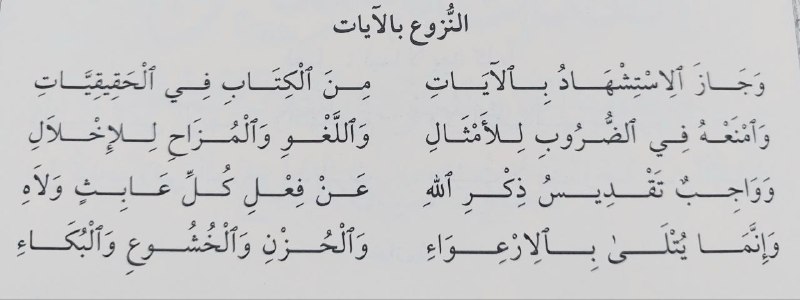 النُّزوع بالآيات
وَجَازَ ٱلِاسْتِشْهَادُ بِٱلْآيَاتِ مِنَ ٱلْكِتَابِ فِي ٱلْحَقِيقِيَّاتِ
وَٱمْنَعْهُ فِي ٱلضُّرُوبِ لِلأَمْثَالِ وَٱللَّغْوِ وَٱلْمُزَاحِ لِلإِخْلَالِ
وَوَاجِبٌ تَقْدِيسُ ذِكْرِ ٱللهِ عَنْ فِعْلِ كُلِّ عَابِثٍ وَلَاهِ
وَإِنَّمَا يُتْلَىٰ بِٱلِارْعِوَاءِ وَٱلْحُزْنِ وَٱلْخُشُوعِ وَٱلْبُكَاءِ